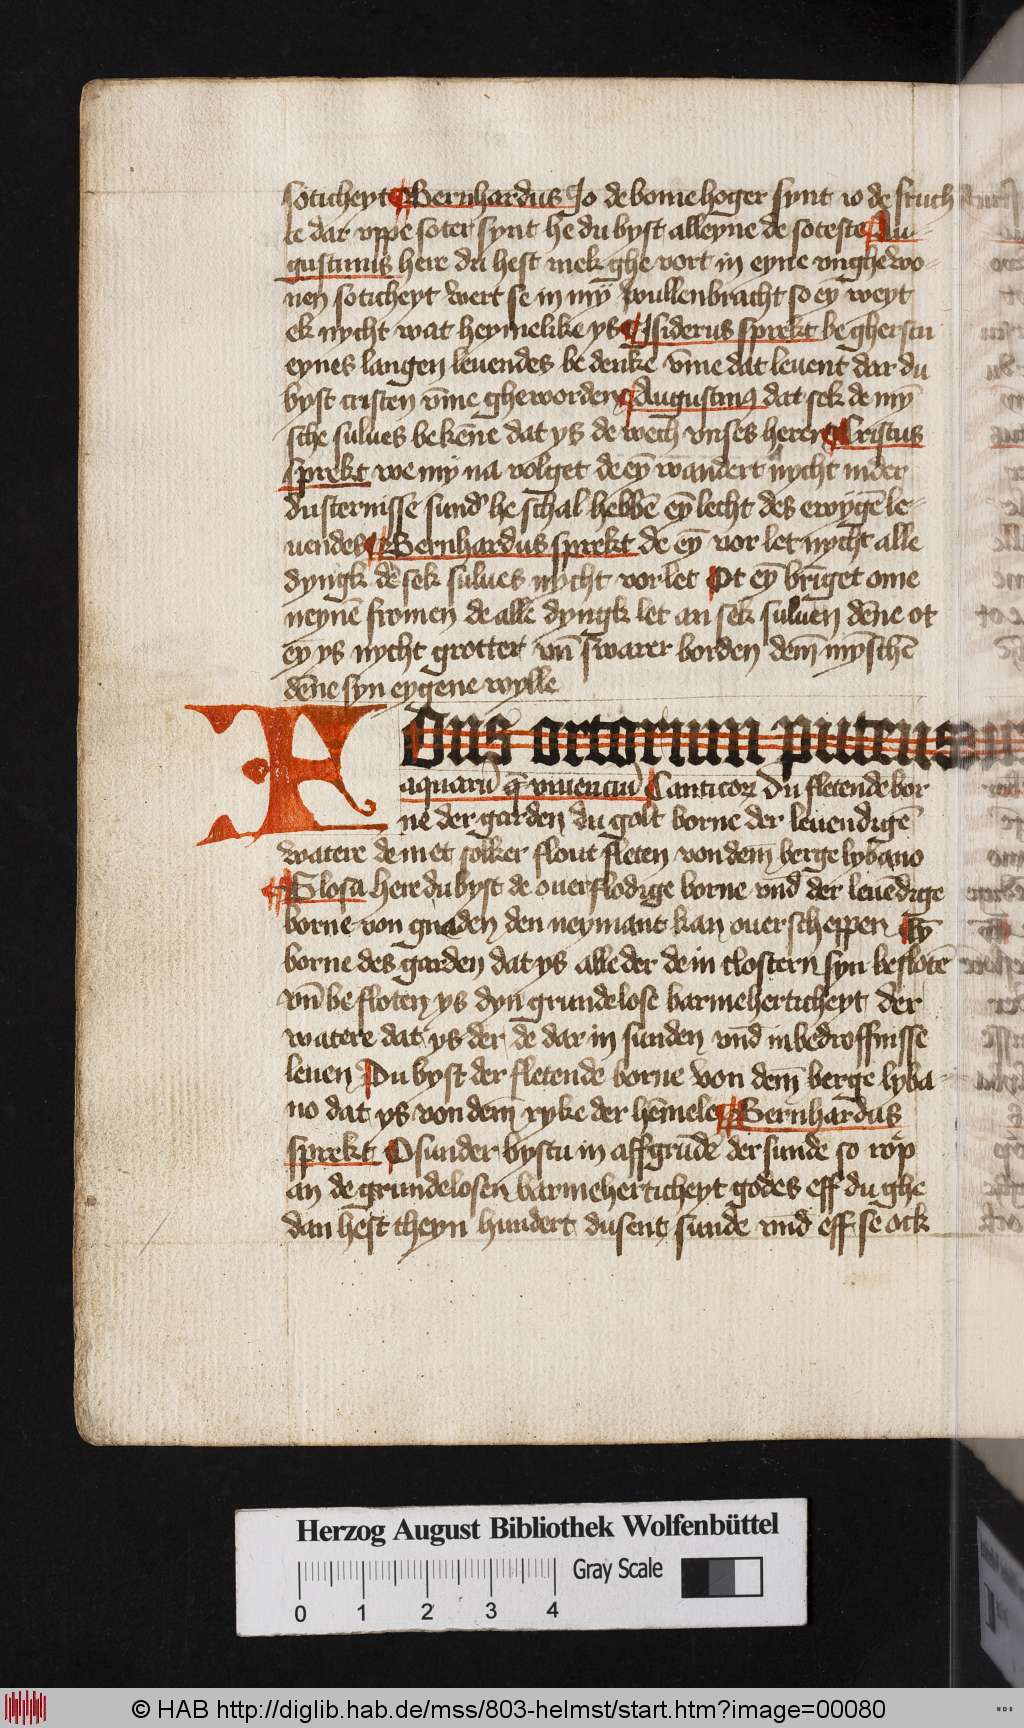 soticheyt Bernhardus Jo de bome hoger synt io de fruch
te dar vppe soter synt he du byst alleyne de soteste Au-
gustinus here du hest mek ghe vort in eyne vnghewo-
nen soticheyt wert se in mÿ wullenbracht so eÿ weyt
ek nycht wat heymelike ys Isiderus sprekt begherstu
eynes langen leuendes be denke v̄me dat leuent dar du
byst cristen v̄me gheworden Augustinus dat sek de mȳ
sche sulues bekēne dat ys de wech vnses heren Cristus
sprekt we mÿ na volget de eȳ wandert nycht in der
dusternisse sund' he schal hebbē eȳ lecht des ewygē le-
uendes Bernhardus sprekt de eȳ vor let nycht alle
dyngk de sek sulues nycht vorlet Ot eȳ brīget ome
neynē fromen de alle dyngk let an sek suluen dēne ot
eȳ ys nycht grotter vn̄ swarer borden dem̄ mȳschē
dēne syn eygene wylle
Fons ortorum puteus
aquarū q̄ viuenciū Canticor Du fletende bor
ne der garden du golt borne der leuendigē
watere de met solker flout fleten von dem̄ berge lybano
Glosa here du byst de ouerflodige borne vnd der leuēdige
borne von gnaden den neymant kan ouerscheppen Eȳ
borne des garden dat ys alle der de in clostern syn beslotē
vn̄ be floten ys dyn grundelose barmeherticheyt der
watere dat ys der de dar in sunden vn̄d in bedroffnisse
leuen Du byst der fletende borne von dem̄ berge lyba-
no dat ys von dem̄ ryke der hēmele Bernhardus
sprekt O sunder bystu in affgrūde der sunde so rop
an de grundelosen barmeherticheyt godes eff du ghe
dan hest theyn hundert dusent sunde vn̄d eff se ock
Herzog August Bibliothek Wolfenbüttel
Gray Scale
0 1 2 3 4
© HAB http://diglib.hab.de/mss/803-helmst/start.htm?image=00080